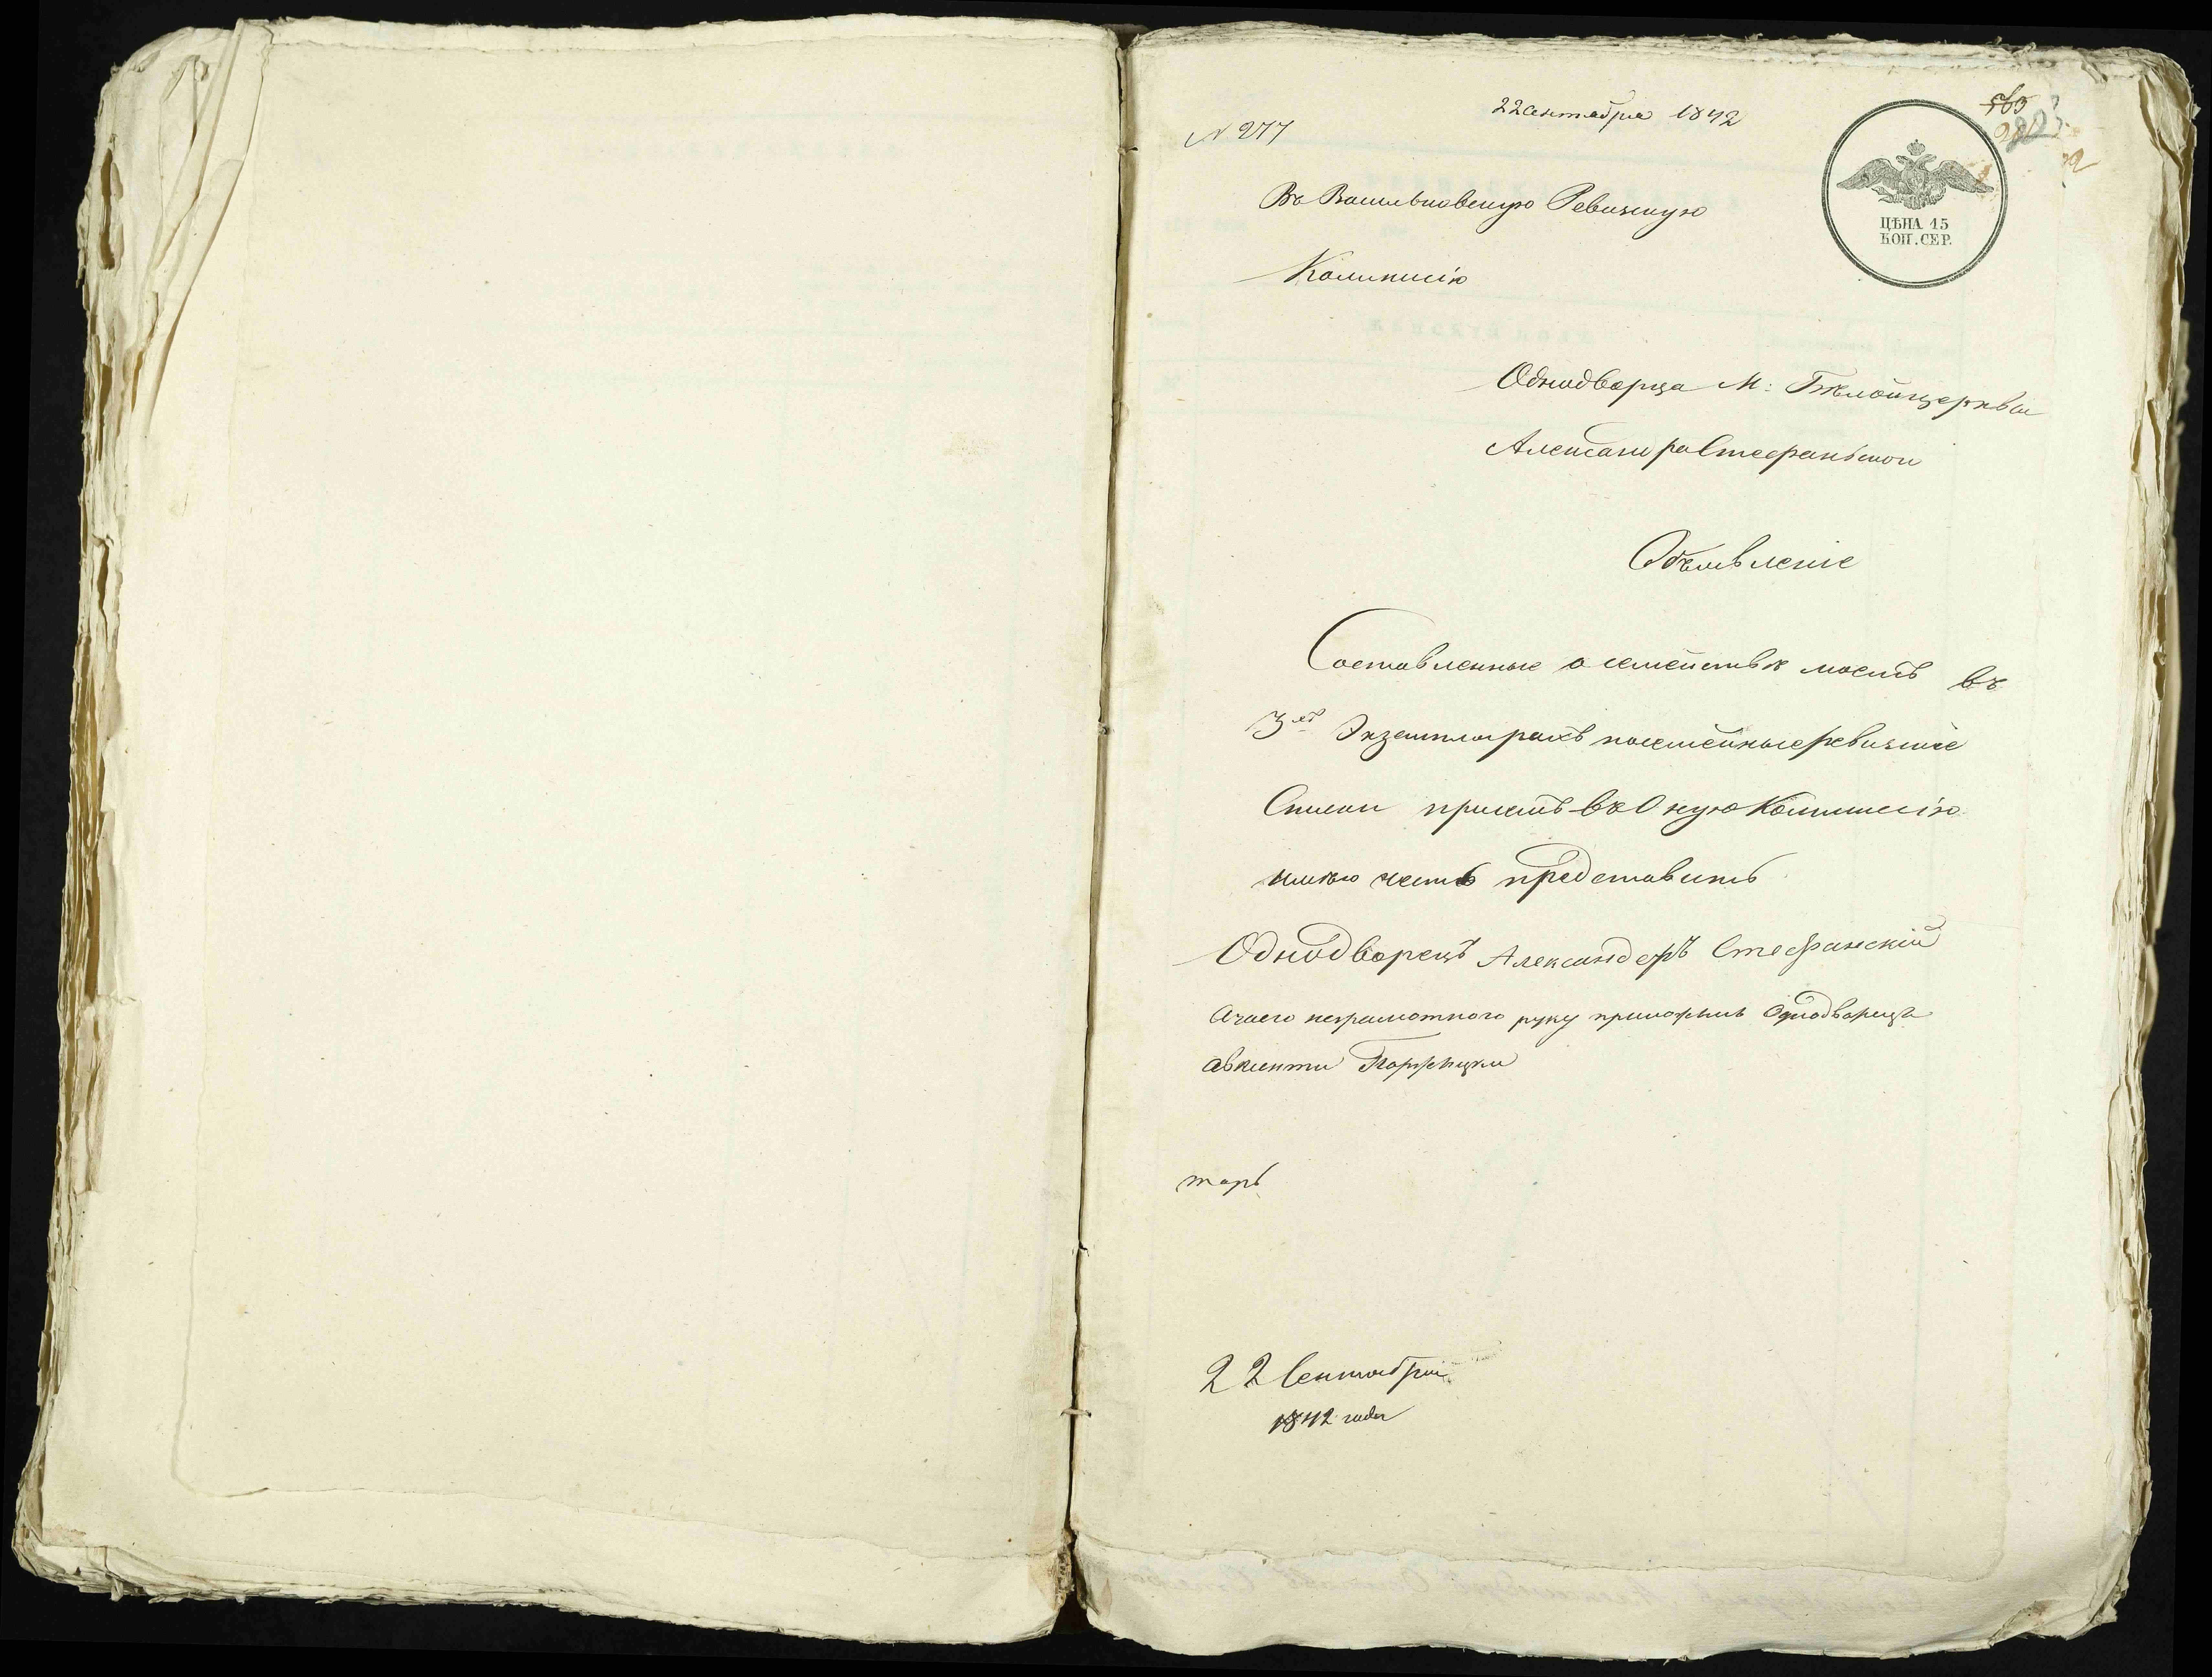 22 Сентября 1842
№ 277
ЦѢНА 15
КОП. СЕР.
Въ Васильковскую Ревизкую
Коммисію
Однодворца М: Бѣлойцеркви
Александра Стефаньской
Объявленіе
Составленные о семействѣ моемъ въ
3хъ Экземплярахъ посемейные ревизкіе
Списки при семъ въ Оную Коммисію
имѣю честь представить
Однодворецъ Александеръ Стефанскій
А за его неграмотного руку приложилъ Однодворецъ
22 Сентября
1842 года